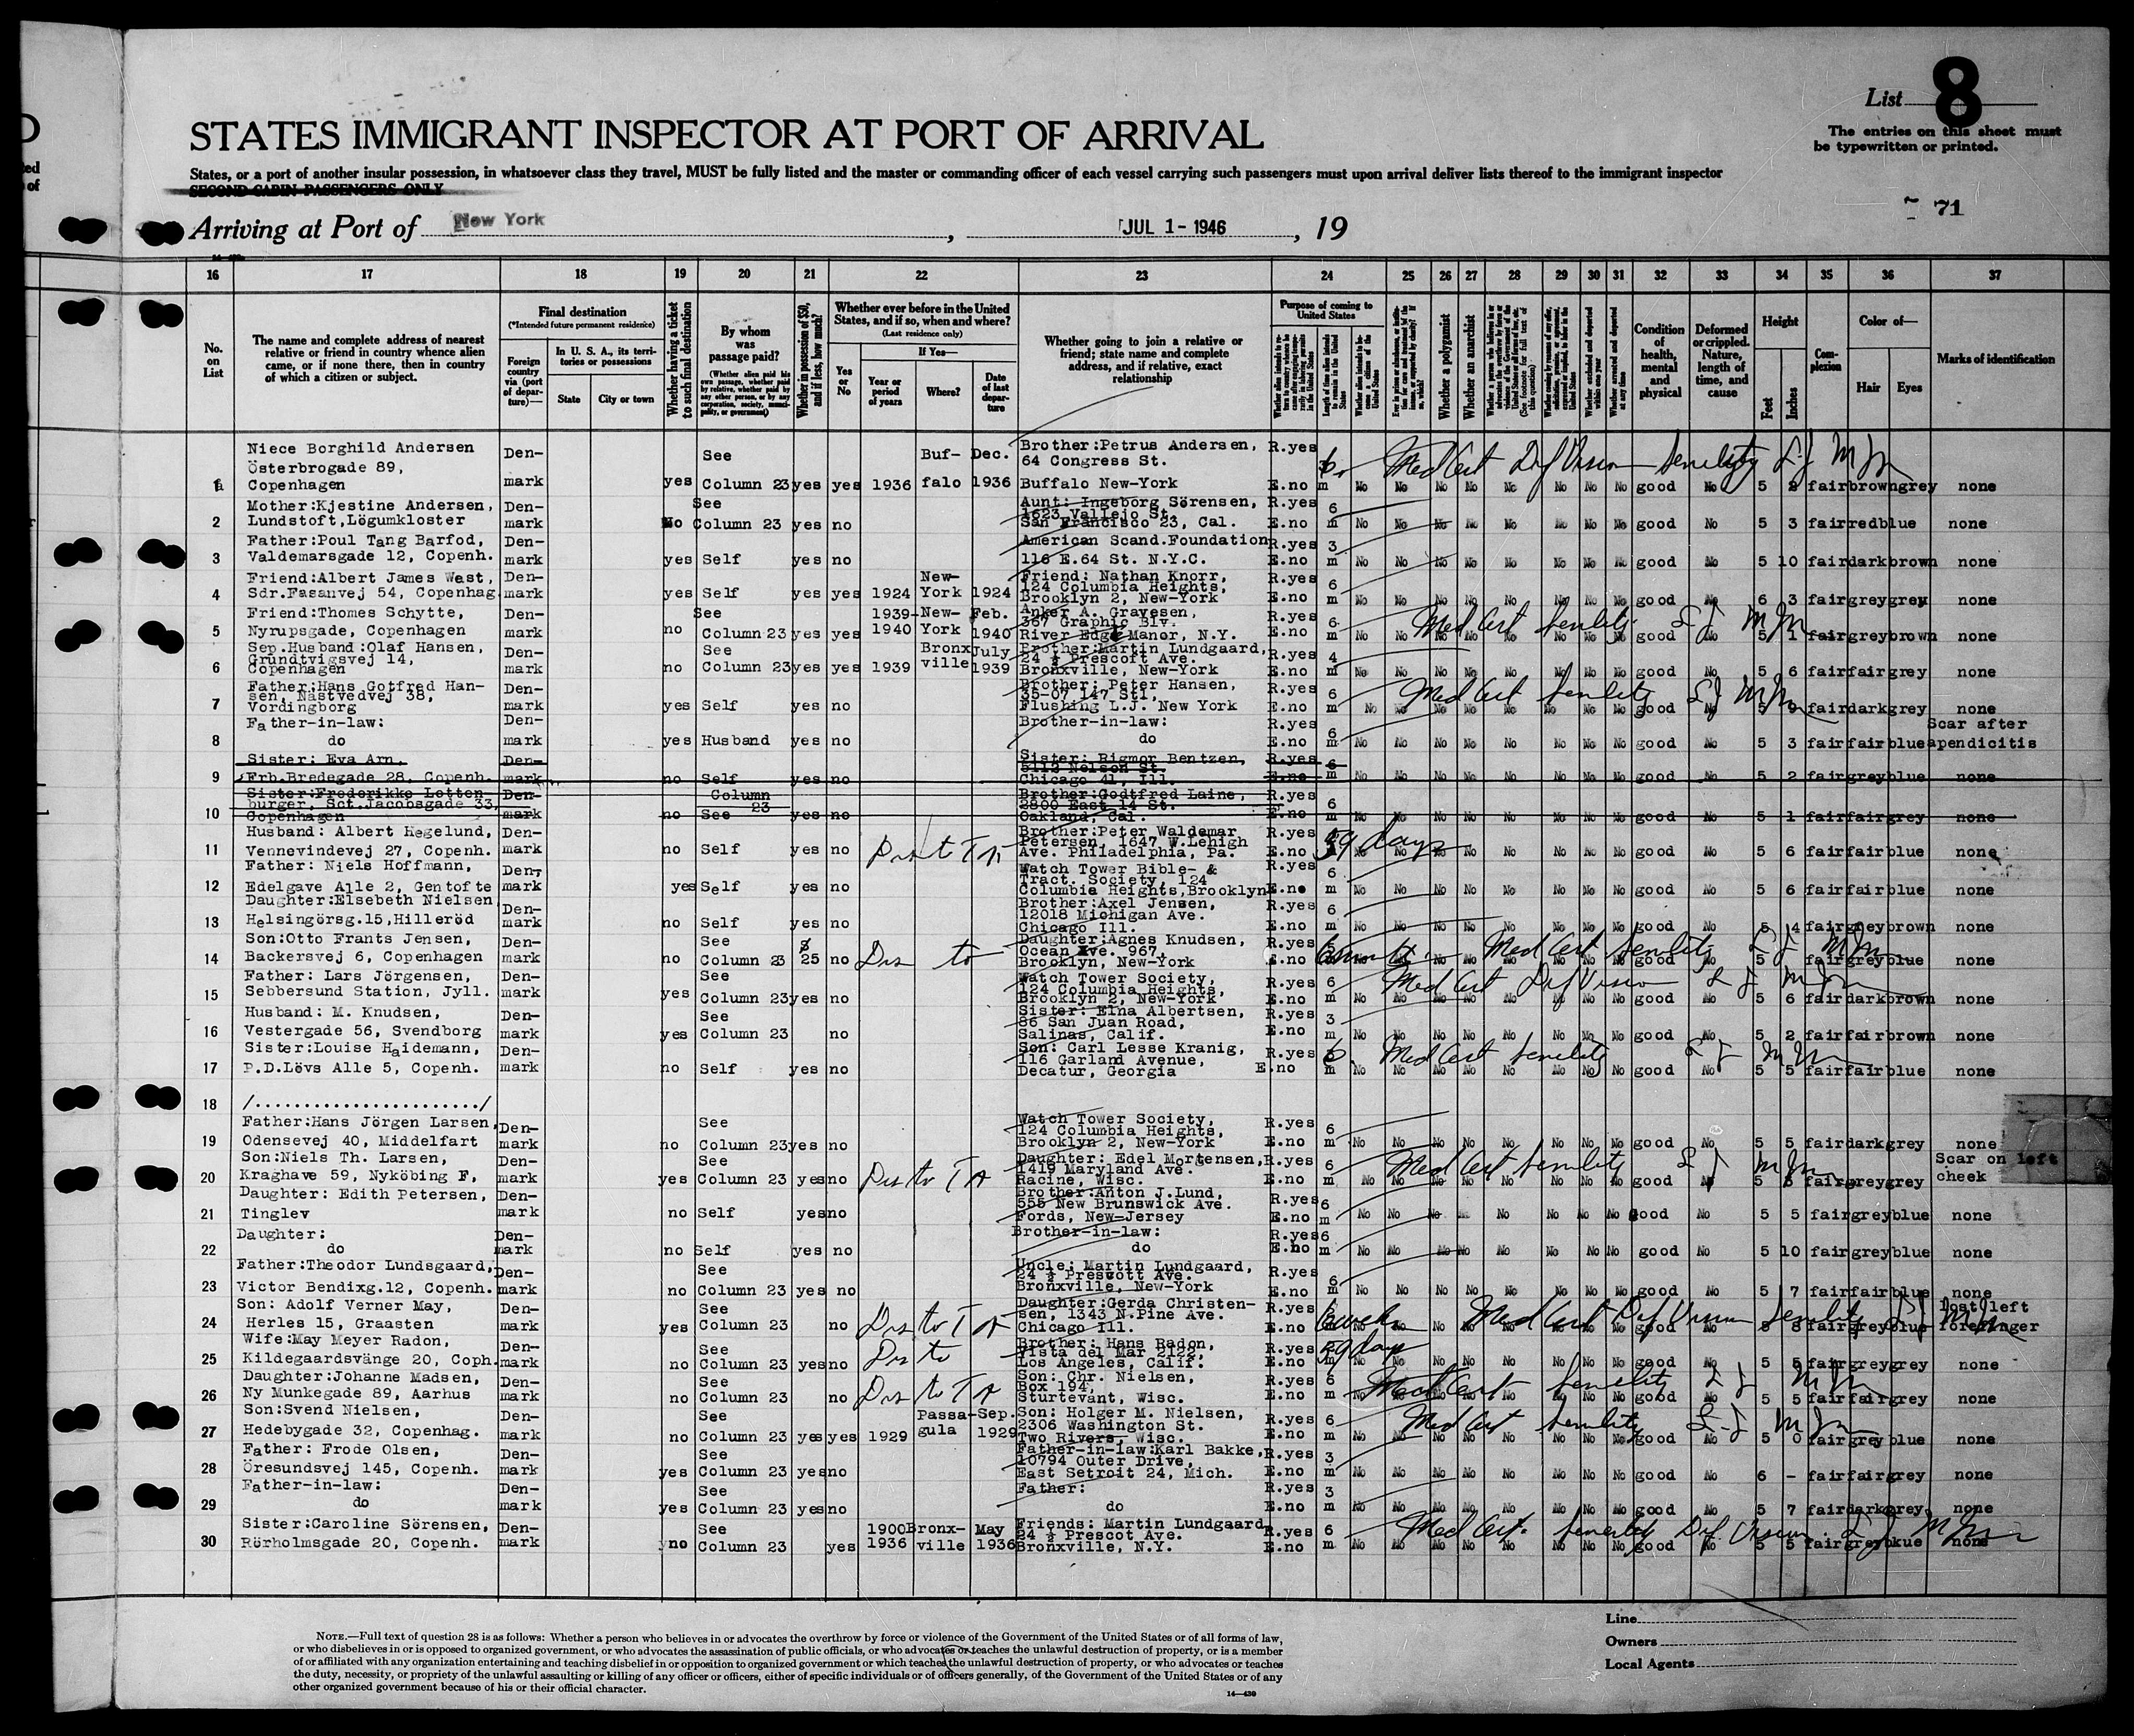 List 8
The entries on this sheet must
be typewritten or printed.
STATES IMMIGRANT INSPECTOR AT PORT OF ARRIVAL
States, or a port of another insular possession, in whatsoever class they travel, MUST be fully listed and the master or commanding officer of each vessel carrying such passengers must upon arrival deliver lists thereof to the immigrant inspector
SECOND-CABIN PASSENGERS ONLY
71
Arriving at Port of New York, JUL 1 - 1946, 19
16 17 18 19 20 21 22 23 24 25 26 27 28 29 30 31 32 33 34 35 36 37
No. on List
The name and complete address of nearest
relative or friend in country whence alien
came, or if none there, then in country
of which a citizen or subject.
Final destination
(*Intended future permanent residence)
Foreign country via (port of departure)—
In U. S. A., its territories or possessions
State
City or town
Whether having a ticket to such final destination
By whom was passage paid?
(Whether alien paid his own passage, whether paid by relative, whether paid by any other person, or by any corporation, society, municipality, or government)
Whether in possession of $50, and if less, how much?
Whether ever before in the United States, and if so, when and where?
(Last residence only)
Yes or No
If Yes—
Year or period of years
Where?
Date of last departure
Whether going to join a relative or
friend; state name and complete
address, and if relative, exact
relationship
Purpose of coming to United States
Whether a polygamist
Whether an anarchist
Condition of health, mental and physical
Deformed or crippled. Nature, length of time, and cause
Height
Feet
Inches
Complexion
Color of—
Hair
Eyes
Marks of identification
Niece Borghild Andersen Den- See Buf- Dec. Brother:Petrus Andersen, R.yes
Österbrogade 89, 64 Congress St. Med Cert Def Vision Senility
1 Copenhagen mark yes Column 23 yes yes 1936 falo 1936 Buffalo New-York E.no m No No No No No No No No good No 5 fair brown grey none
Mother:Kjestine Andersen, Den- See Aunt: Ingeborg Sörensen, R.yes 6
1623 Vallejo St.
2 Lundstoft,Lögumkloster mark No Column 23 yes no San Francisco 23, Cal. E.no m No No No No No No No No good No 5 3 fair red blue none
Father:Poul Tang Barfod, Den- American Scand.Foundation R.yes 3
3 Valdemarsgade 12, Copenh. mark yes Self yes no 116 E.64 St. N.Y.C. E.no m No No No No No No No No good No 5 10 fair dark brown none
Friend:Albert James West, Den- New- Friend: Nathan Knorr, R.yes 6
124 Columbia Heights,
4 Sdr.Fasanvej 54, Copenhag. mark yes Self yes yes 1924 York 1924 Brooklyn 2, New-York E.no m No No No No No No No No good No 6 3 fair grey grey none
Friend:Thomes Schytte, Den- See 1939- New- Feb. Anker A. Gravesen, R.yes 6
367 Graphic Blv. Med Cert Senility
5 Nyrupsgade, Copenhagen mark no Column 23 yes yes 1940 York 1940 River Edge Manor, N.Y. E.no m No No No No No No No No good No 5 1 fair grey brown none
Sep.Husband:Olaf Hansen, Den- See Bronx July Brother:Martin Lundgaard, R.yes 4
Gründtvigsvej 14, 24 ½ Prescott Ave.
6 Copenhagen mark no Column 23 yes yes 1939 ville 1939 Bronxville, New-York E.no m No No No No No No No No good No 5 6 fair fair grey none
Father:Hans Gotfred Han- Den- Brother: Peter Hansen, R.yes 6
sen, Nästvedvej 38, 35-07 147 St., Med Cert Senility
7 Vordingborg mark yes Self yes no Flushing L.J. New York E.no m No No No No No No No No good No 5 9 fair dark grey none
Father-in-law: Den- Brother-in-law: R.yes 6 Scar after
8 do mark yes Husband yes no do E.no m No No No No No No No No good No 5 3 fair fair blue apendicitis
Sister: Eva Arn. Den- Sister: Rigmor Bentzen, R.yes 6
5112 Nelson St.
9 Frb.Bredegade 28, Copenh. mark no Self yes no Chicago 41, Ill. E.no m No No No No No No No No good No 5 2 fair grey blue none
Sister:Frederikke Lotten- Den- Column Brother:Godtfred Laine, R.yes
burger, Sct.Jacobsgade 33, 23 2800 East 14 St. 6
10 Copenhagen mark no See yes no Oakland, Cal. m No No No No No No No No good No 5 1 fair fair grey none
Husband: Albert Hegelund, Den- Brother:Peter Waldemar R.yes 59 days
Petersen, 1647 W.Lehigh
11 Vennevindevej 27, Copenh. mark no Self yes no Ave. Philadelphia, Pa. E.no No No No No No No No good No 5 6 fair fair blue none
Father: Niels Hoffmann, Den- Watch Tower Bible- & R.yes 6
Tract. Society, 124
12 Edelgave Alle 2, Gentofte mark yes Self yes no Columbia Heights,Brooklyn E.no m No No No No No No No No good No 5 6 fair fair blue none
Daughter:Elsebeth Nielsen Den- Brother:Axel Jensen, R.yes 6
12018 Michigan Ave.
13 Helsingörsg.15,Hilleröd mark no Self yes no Chicago Ill. E.no m No No No No No No No No good No 5 4 fair grey brown none
Son:Otto Frants Jensen, Den- See $ Daughter:Agnes Knudsen, R.yes
Ocean Ave. 967, Med Cert Senility
14 Backersvej 6, Copenhagen mark no Column 23 25 no Brooklyn, New-York E.no 6 months No No No No good No fair grey blue none
Father: Lars Jörgensen, Den- See Watch Tower Society, R.yes 6
124 Columbia Heights, Med Cert Def Vision
15 Sebbersund Station, Jyll. mark yes Column 23 yes no Brooklyn 2, New-York E.no m No No No No No No No No good No 5 6 fair dark brown none
Husband: M. Knudsen, Den- See Sister: Elna Albertsen, R.yes 3
86 San Juan Road,
16 Vestergade 56, Svendborg mark yes Column 23 no Salinas, Calif. E.no m No No No No No No No No good No 5 2 fair fair brown none
Sister:Louise Haidemann, Den- Son: Carl Lesse Kranig, R.yes 6
116 Garland Avenue, Med Cert Senility
17 P.D.Lövs Alle 5, Copenh. mark no Self yes no Decatur, Georgia E.no m No No No No No No No No good No 5 5 fair fair blue none
18 /......................./
Father:Hans Jörgen Larsen, Den- See Watch Tower Society, R.yes 6
124 Columbia Heights,
19 Odensevej 40, Middelfart mark no Column 23 yes no Brooklyn 2, New-York E.no m No No No No No No No No good No 5 5 fair dark grey none
Son:Niels Th. Larsen, Den- See Daughter: Edel Mortensen, R.yes 6 Scar on left
1419 Maryland Ave. Med Cert Senility
20 Kraghave 59, Nyköbing F, mark yes Column 23 yes no Racine, Wisc. E.no m No No No No No No No No good No 5 5 fair grey grey cheek
Daughter: Edith Petersen, Den- Brother:Anton J.Lund, R.yes 6
555 New Brunswick Ave.
21 Tinglev mark no Self yes no Fords, New-Jersey E.no m No No No No No No No good No 5 5 fair grey blue none
Daughter: Den- Brother-in-law: R.yes 6
22 do mark no Self yes no do E.no m No No No No No No No No good No 5 10 fair grey blue none
Father:Theodor Lundsgaard, Den- See Uncle: Martin Lundgaard, R.yes 6
24 ½ Prescott Ave.
23 Victor Bendixg.12, Copenh. mark no Column 23 yes no Bronxville, New-York E.no m No No No No No No No No good No 5 7 fair fair blue none
Son: Adolf Verner May, Den- See Daughter:Gerda Christen- R.yes lost left
sen, 1343 N.Pine Ave. Med Cert Def Vision Senility
24 Herles 15, Graasten mark yes Column 23 no Chicago Ill. E.no 6 weeks No No No No No No No good No 5 8 fair grey blue forefinger
Wife:May Meyer Radon, Den- See Brother: Hans Radon, R.yes 59 days
Vista del Mar 2122,
25 Kildegaardsvänge 20, Coph. mark no Column 23 yes no Los Angeles, Calif. E.no No No No No No No No No good No 5 5 fair grey grey none
Daughter:Johanne Madsen, Den- See Son: Chr. Nielsen, R.yes 6
Box 194, Med Cert Senility
26 Ny Munkegade 89, Aarhus mark no Column 23 no Sturtevant, Wisc. E.no m No No No No No No No No good No 5 5 fair fair grey none
Son:Svend Nielsen, Den- See Passa- Sep. Son: Holger M. Nielsen, R.yes 6
2306 Washington St. Med Cert Senility
27 Hedebygade 32, Copenhag. mark no Column 23 yes yes 1929 gula 1929 Two Rivers, Wisc. E.no m No No No No No No No No good No 5 0 fair grey blue none
Father: Frode Olsen, Den- See Father-in-law:Karl Bakke, R.yes 3
10794 Outer Drive,
28 Öresundsvej 145, Copenh. mark yes Column 23 yes no East Setroit 24, Mich. E.no m No No No No No No No No good No 6 - fair fair grey none
Father-in-law: Den- See Father: R.yes 3
29 do mark yes Column 23 yes no do E.no m No No No No No No No No good No 5 7 fair dark grey none
Sister:Caroline Sörensen, Den- See 1900 Bronx- May Friends: Martin Lundgaard R.yes 6
24 ½ Prescot Ave. Med Cert. Senility Def Vision
30 Rörholmsgade 20, Copenh. mark no Column 23 yes 1936 ville 1936 Bronxville, N.Y. E.no m No No No No No No No No good No 5 5 fair grey bkue none
Line
Owners
Local Agents
NOTE.—Full text of question 28 is as follows: Whether a person who believes in or advocates the overthrow by force or violence of the Government of the United States or of all forms of law,
or who disbelieves in or is opposed to organized government, or who advocates the assassination of public officials, or who advocates or teaches the unlawful destruction of property, or is a member
of or affiliated with any organization entertaining and teaching disbelief in or opposition to organized government or which teaches the unlawful destruction of property, or who advocates or teaches
the duty, necessity, or propriety of the unlawful assaulting or killing of any officer or officers, either of specific individuals or of officers generally, of the Government of the United States or of any
other organized government because of his or their official character.
14—430